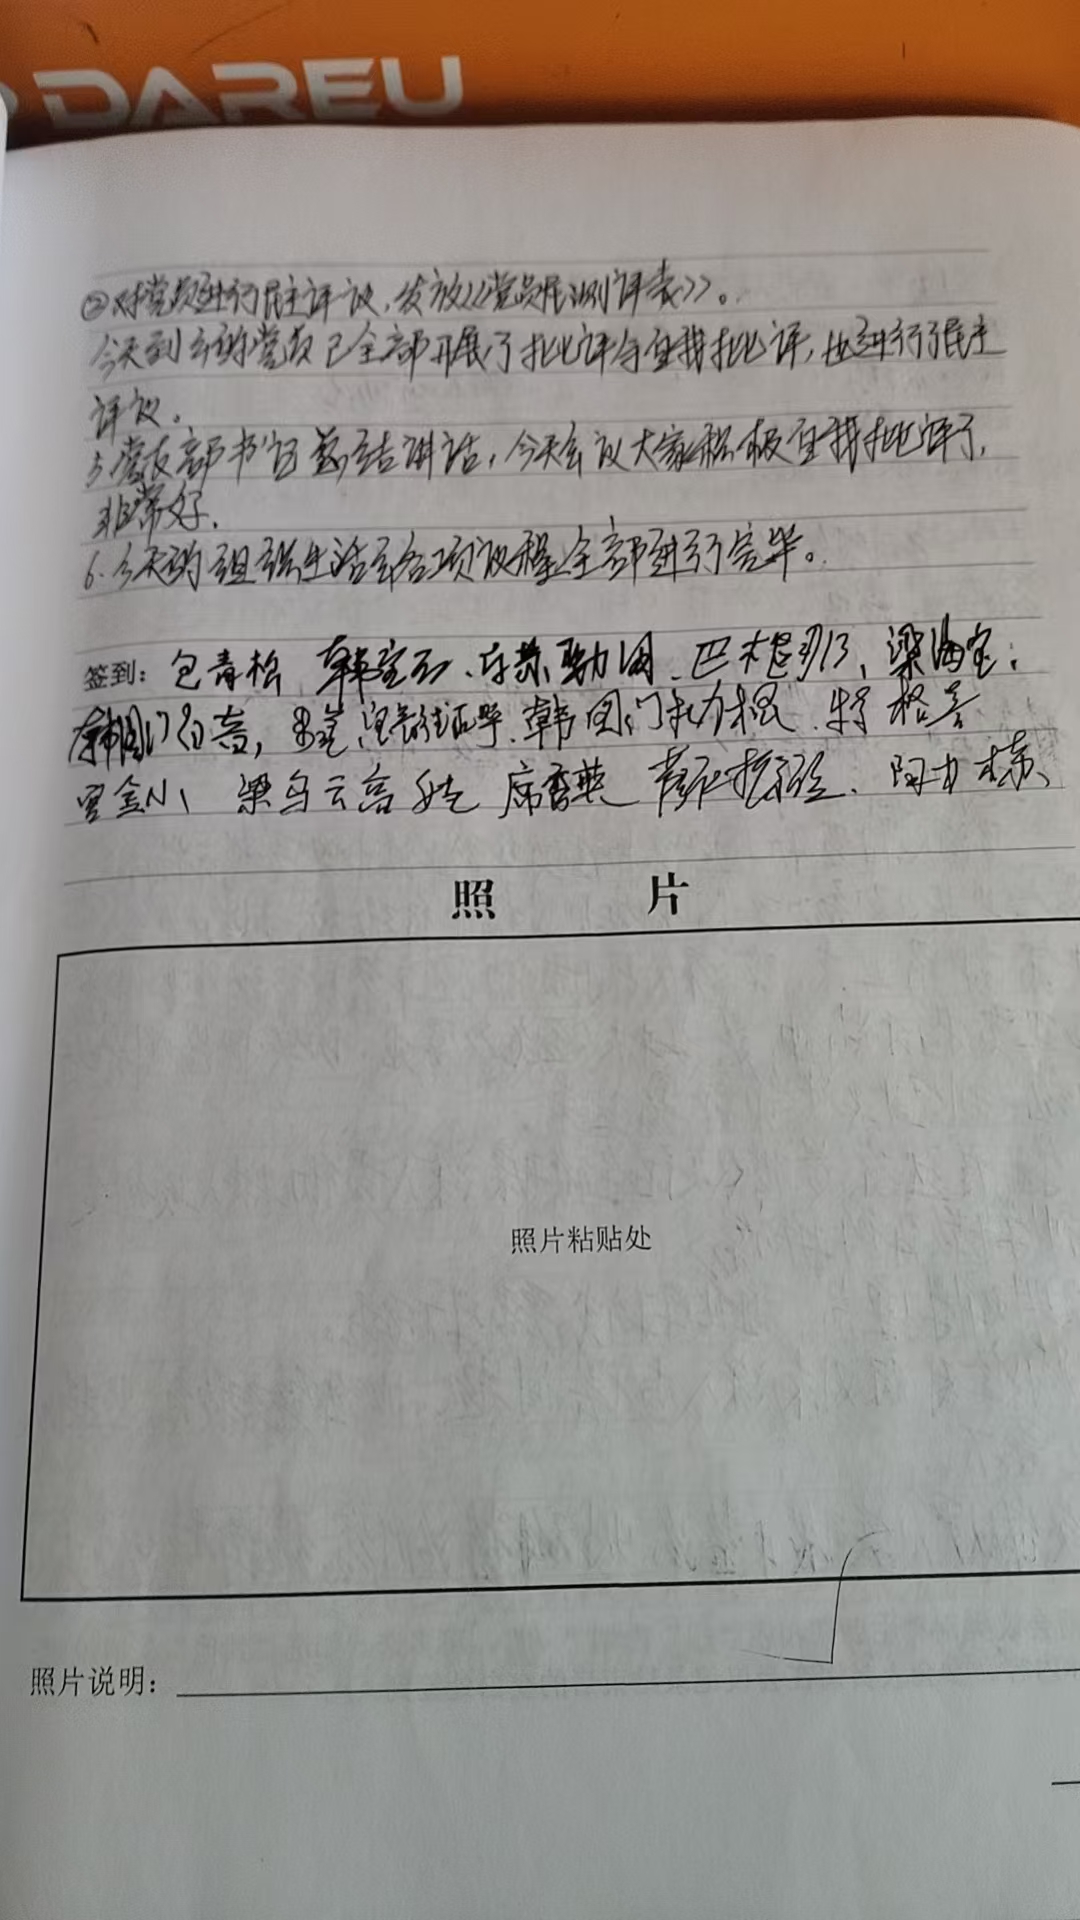 DAREU
②对党员进行民主评议,发放《党员民测评表》。
今天到会的党员已全部开展了批评与自我批评,也进行了民主
评议。
5.党支部书记总结讲话,今天会议大家积极自我批评了,
非常好.
6.今天的组织生活会各项议程全部进行完毕。
签到: 包青松 韩宝石、 梁海宝、
韩国门 特格喜
梁乌云高娃 席香英
照 片
照片粘贴处
照片说明: